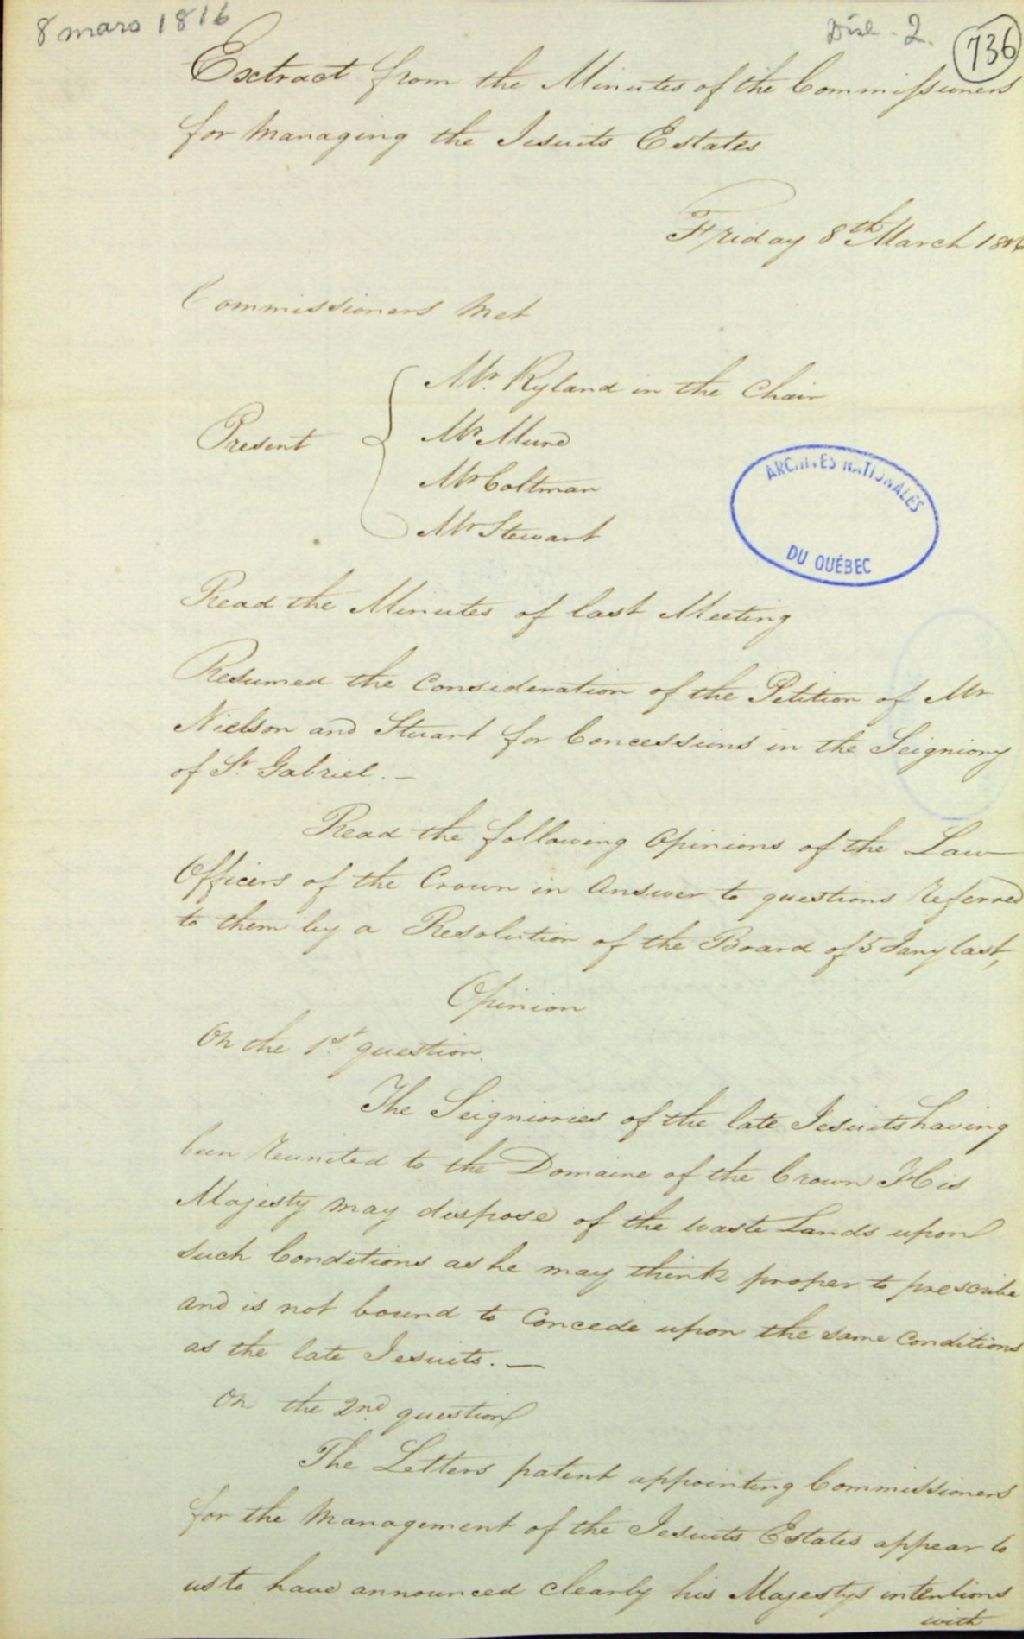 8 mars 1816
Disc. 2.
736
Extract from the Minutes of the Commissioners
for Managing the Jesuits Estates
Friday 8th March 1816
Commissioners Met
Mr. Ryland in the Chair
Present
Mr Mure
Mr Coltman
Mr Stewart
ARCHIVES NATIONALES
DU QUÉBEC
Read the Minutes of last Meeting
Resumed the Consideration of the Petition of Mr
Nielson and Stuart for Concessions in the Seigniory
of St Gabriel. —
Read the following Opinions of the Law
Officers of the Crown in Answer to questions referred
to them by a Resolution of the Board of 5 Jany last,
Opinion
On the 1st question.
The Seigniories of the late Jesuits having
been reunited to the Domaine of the Crown His
Majesty may dispose of the waste Lands upon
such Conditions as he may think proper to prescribe
and is not bound to Concede upon the same Conditions
as the late Jesuits. —
On the 2nd question
The Letters patent appointing Commissioners
for the Management of the Jesuits Estates appear to
us to have announced clearly his Majestys intentions
with